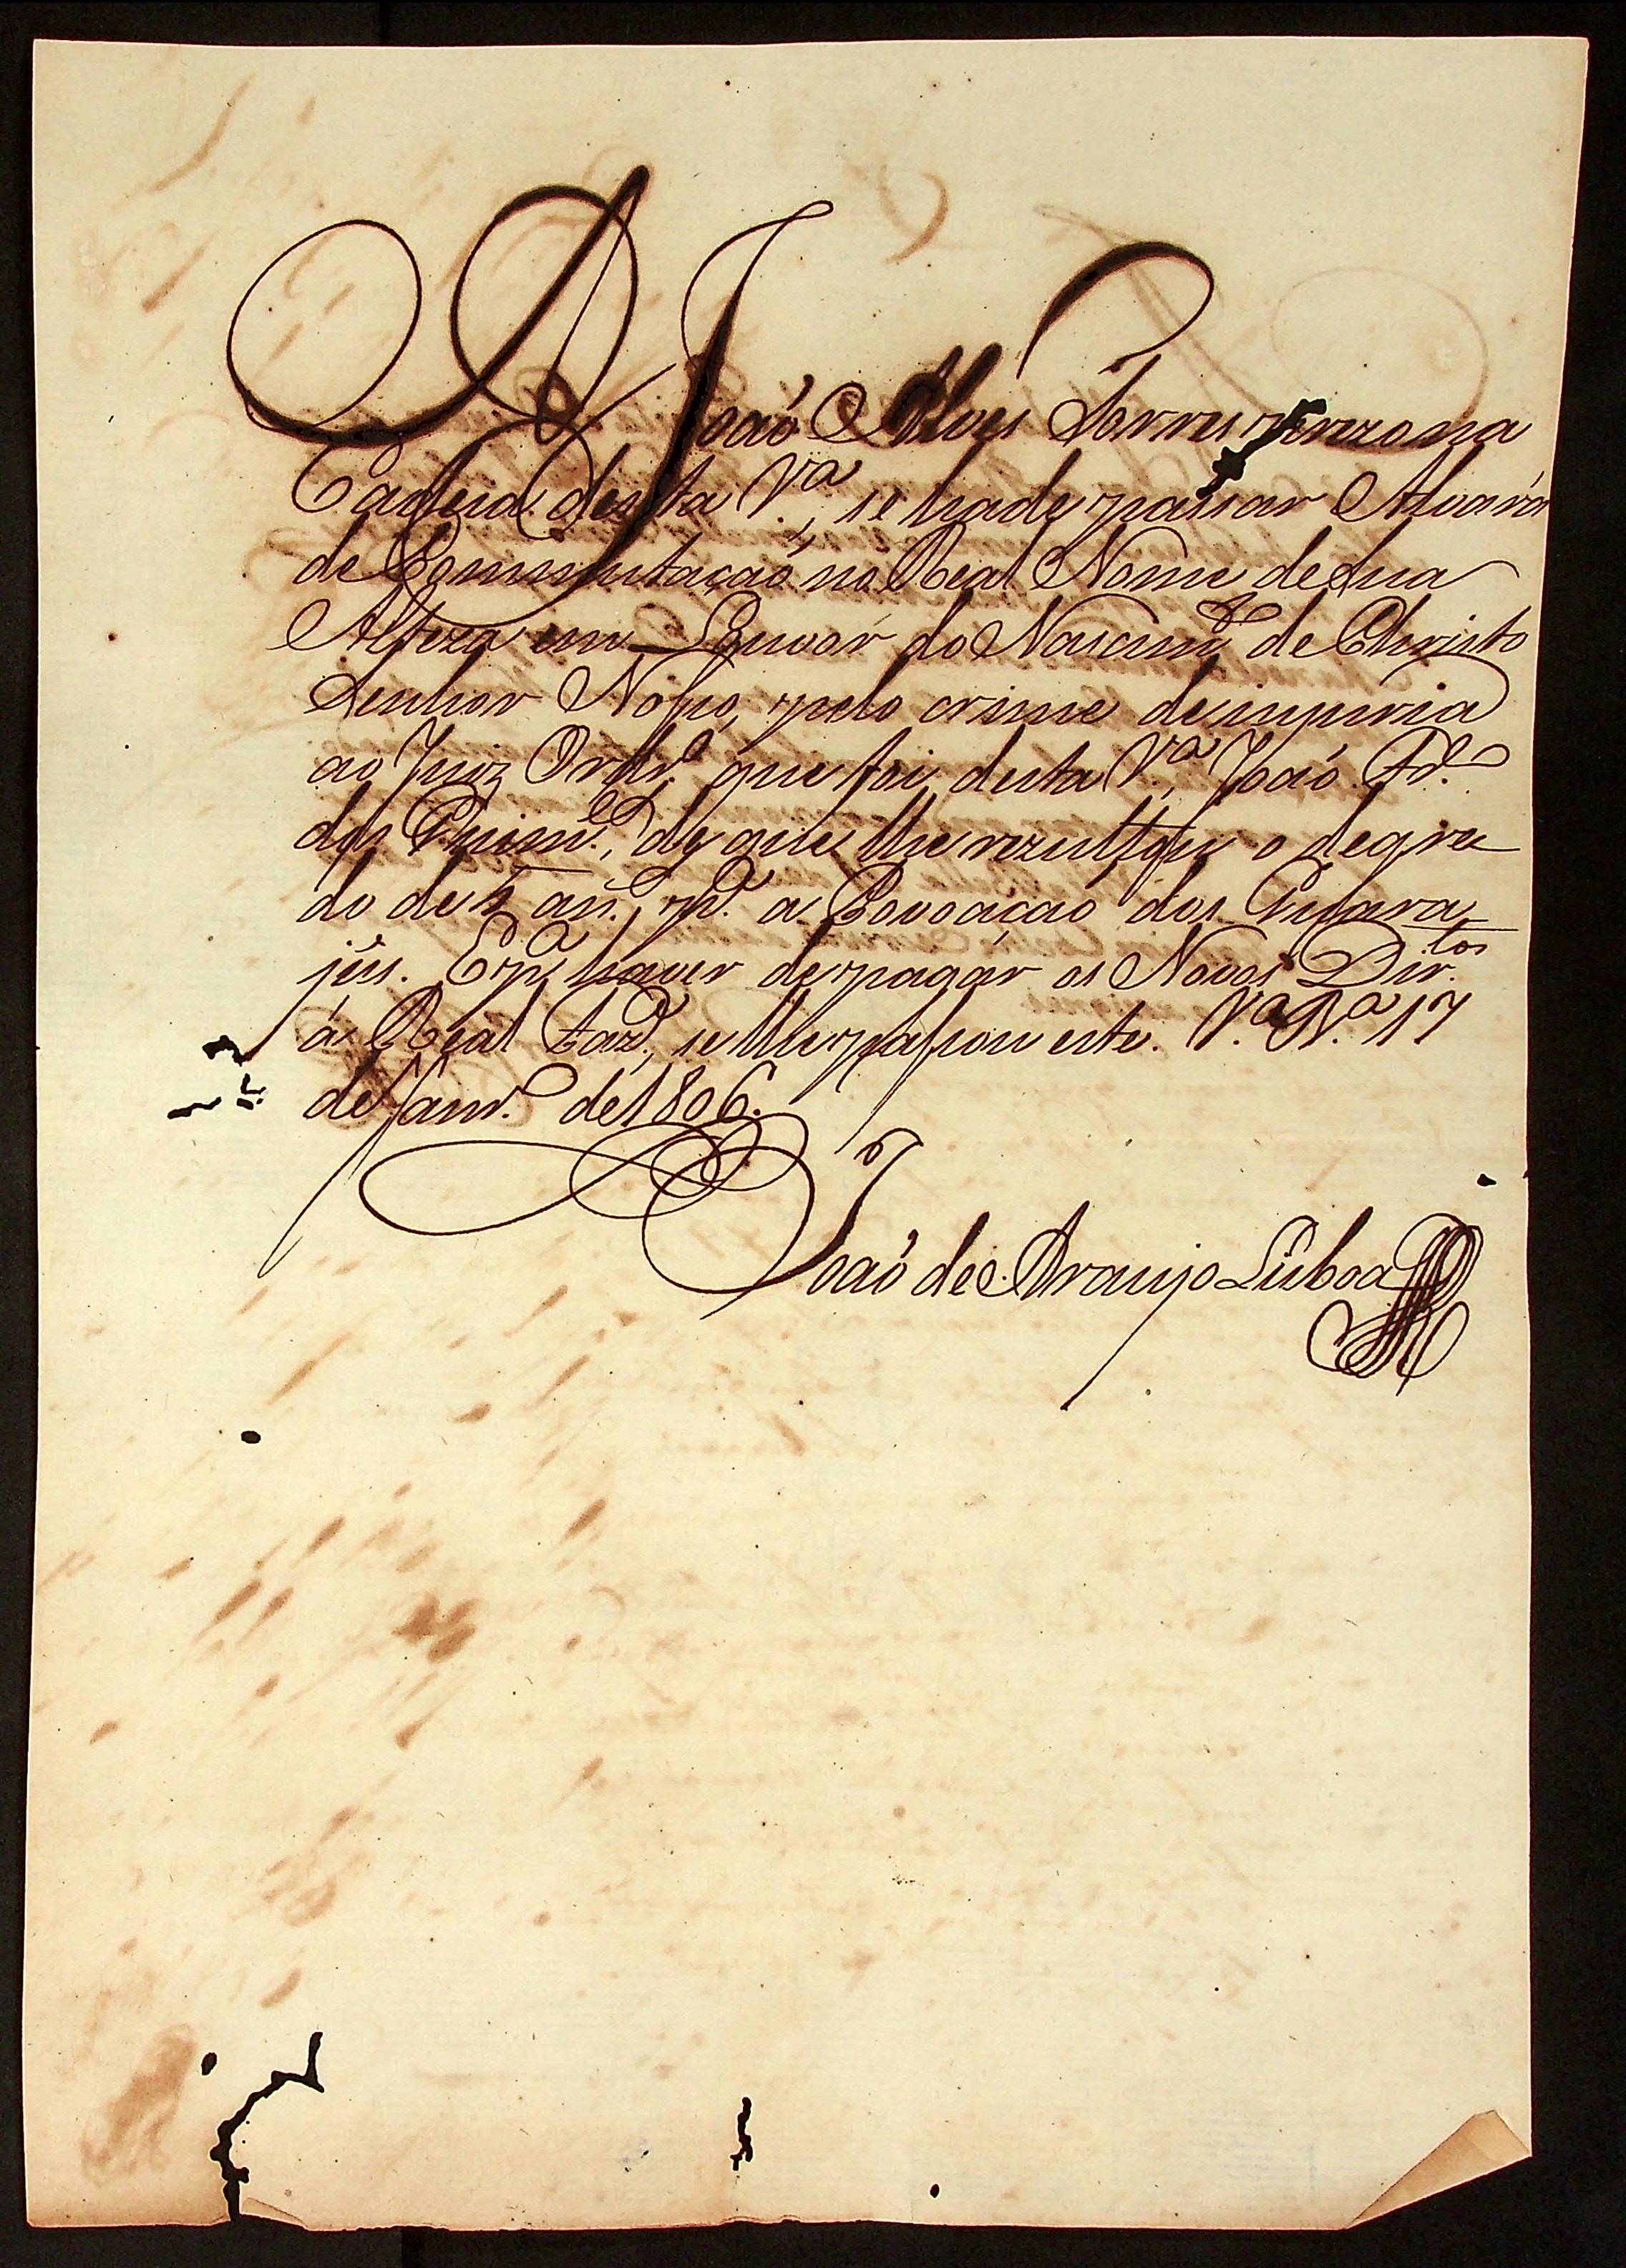 A João Alves Torres prezo na
Cadeia desta V.ª, se hade passar Alvará
de Commutação no Real Nome de Sua
Alteza em Louvor do Nascim.to de Christo
Senhor Nosso, pelo crime de injuria
ao Juiz Ordr.º que foi desta V.ª, João Fr.º
dos Guim.es, de que lhe rezultou o degre
do de 5 an.s p.ª a Povoação dos Guara
jús. E p.ª haver de pagar os Novos Dir.tos
á Real Faz.ª, se lhe passou este. V.ª B.ª 17
de Janr.º de 1806.
João de Araujo Lisboa